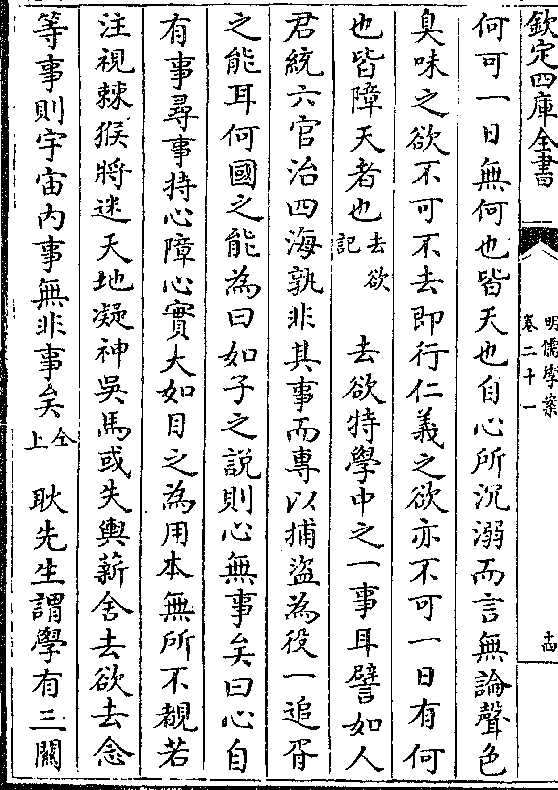 欽定四庫全書
明儒學案
卷二十一
十四
何可一日無何也皆天也自心所沉溺而言無論聲色
臭味之欲不可不去即行仁義之欲亦不可一日有何
也皆障天者也去欲記　去欲特學中之一事耳譬如人
君統六官治四海孰非其事而專以捕盜為役一追胥
之能耳何國之能為曰如子之説則心無事矣曰心自
有事尋事持心障心實大如目之為用本無所不覩若
注視棘猴將迷天地凝神吳馬或失輿薪舍去欲去念
等事則宇宙內事無非事矣仝上　耿先生謂學有三關